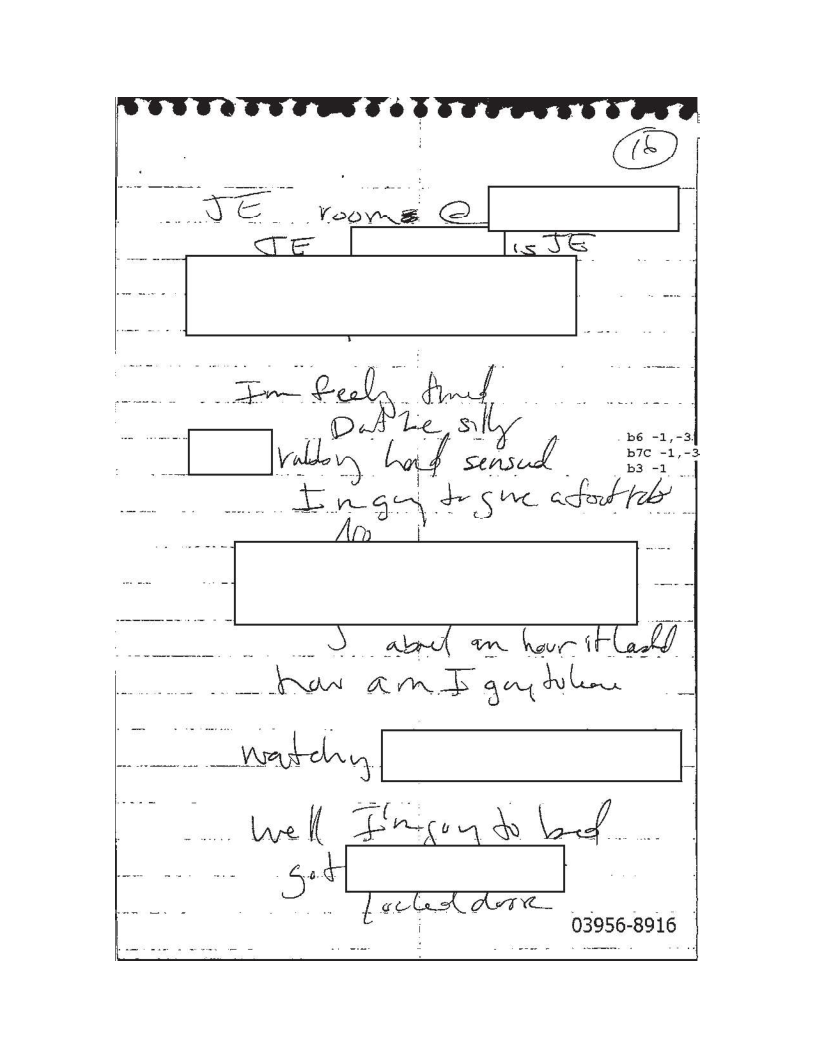 16
JE rooms @
JE is JE
I'm feely tired
Don't be silly
b6 -1,-3
b7C -1,-3
b3 -1
rubbing hand sensual
I'm going to give a foot rub
No
about an hour it lasted
how am I going to leave
watching
well I'm going to bed
got
locked door
03956-8916